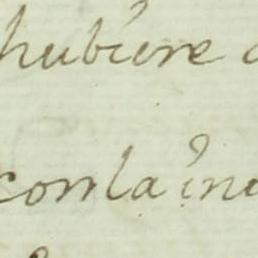 hubiere
con la inu